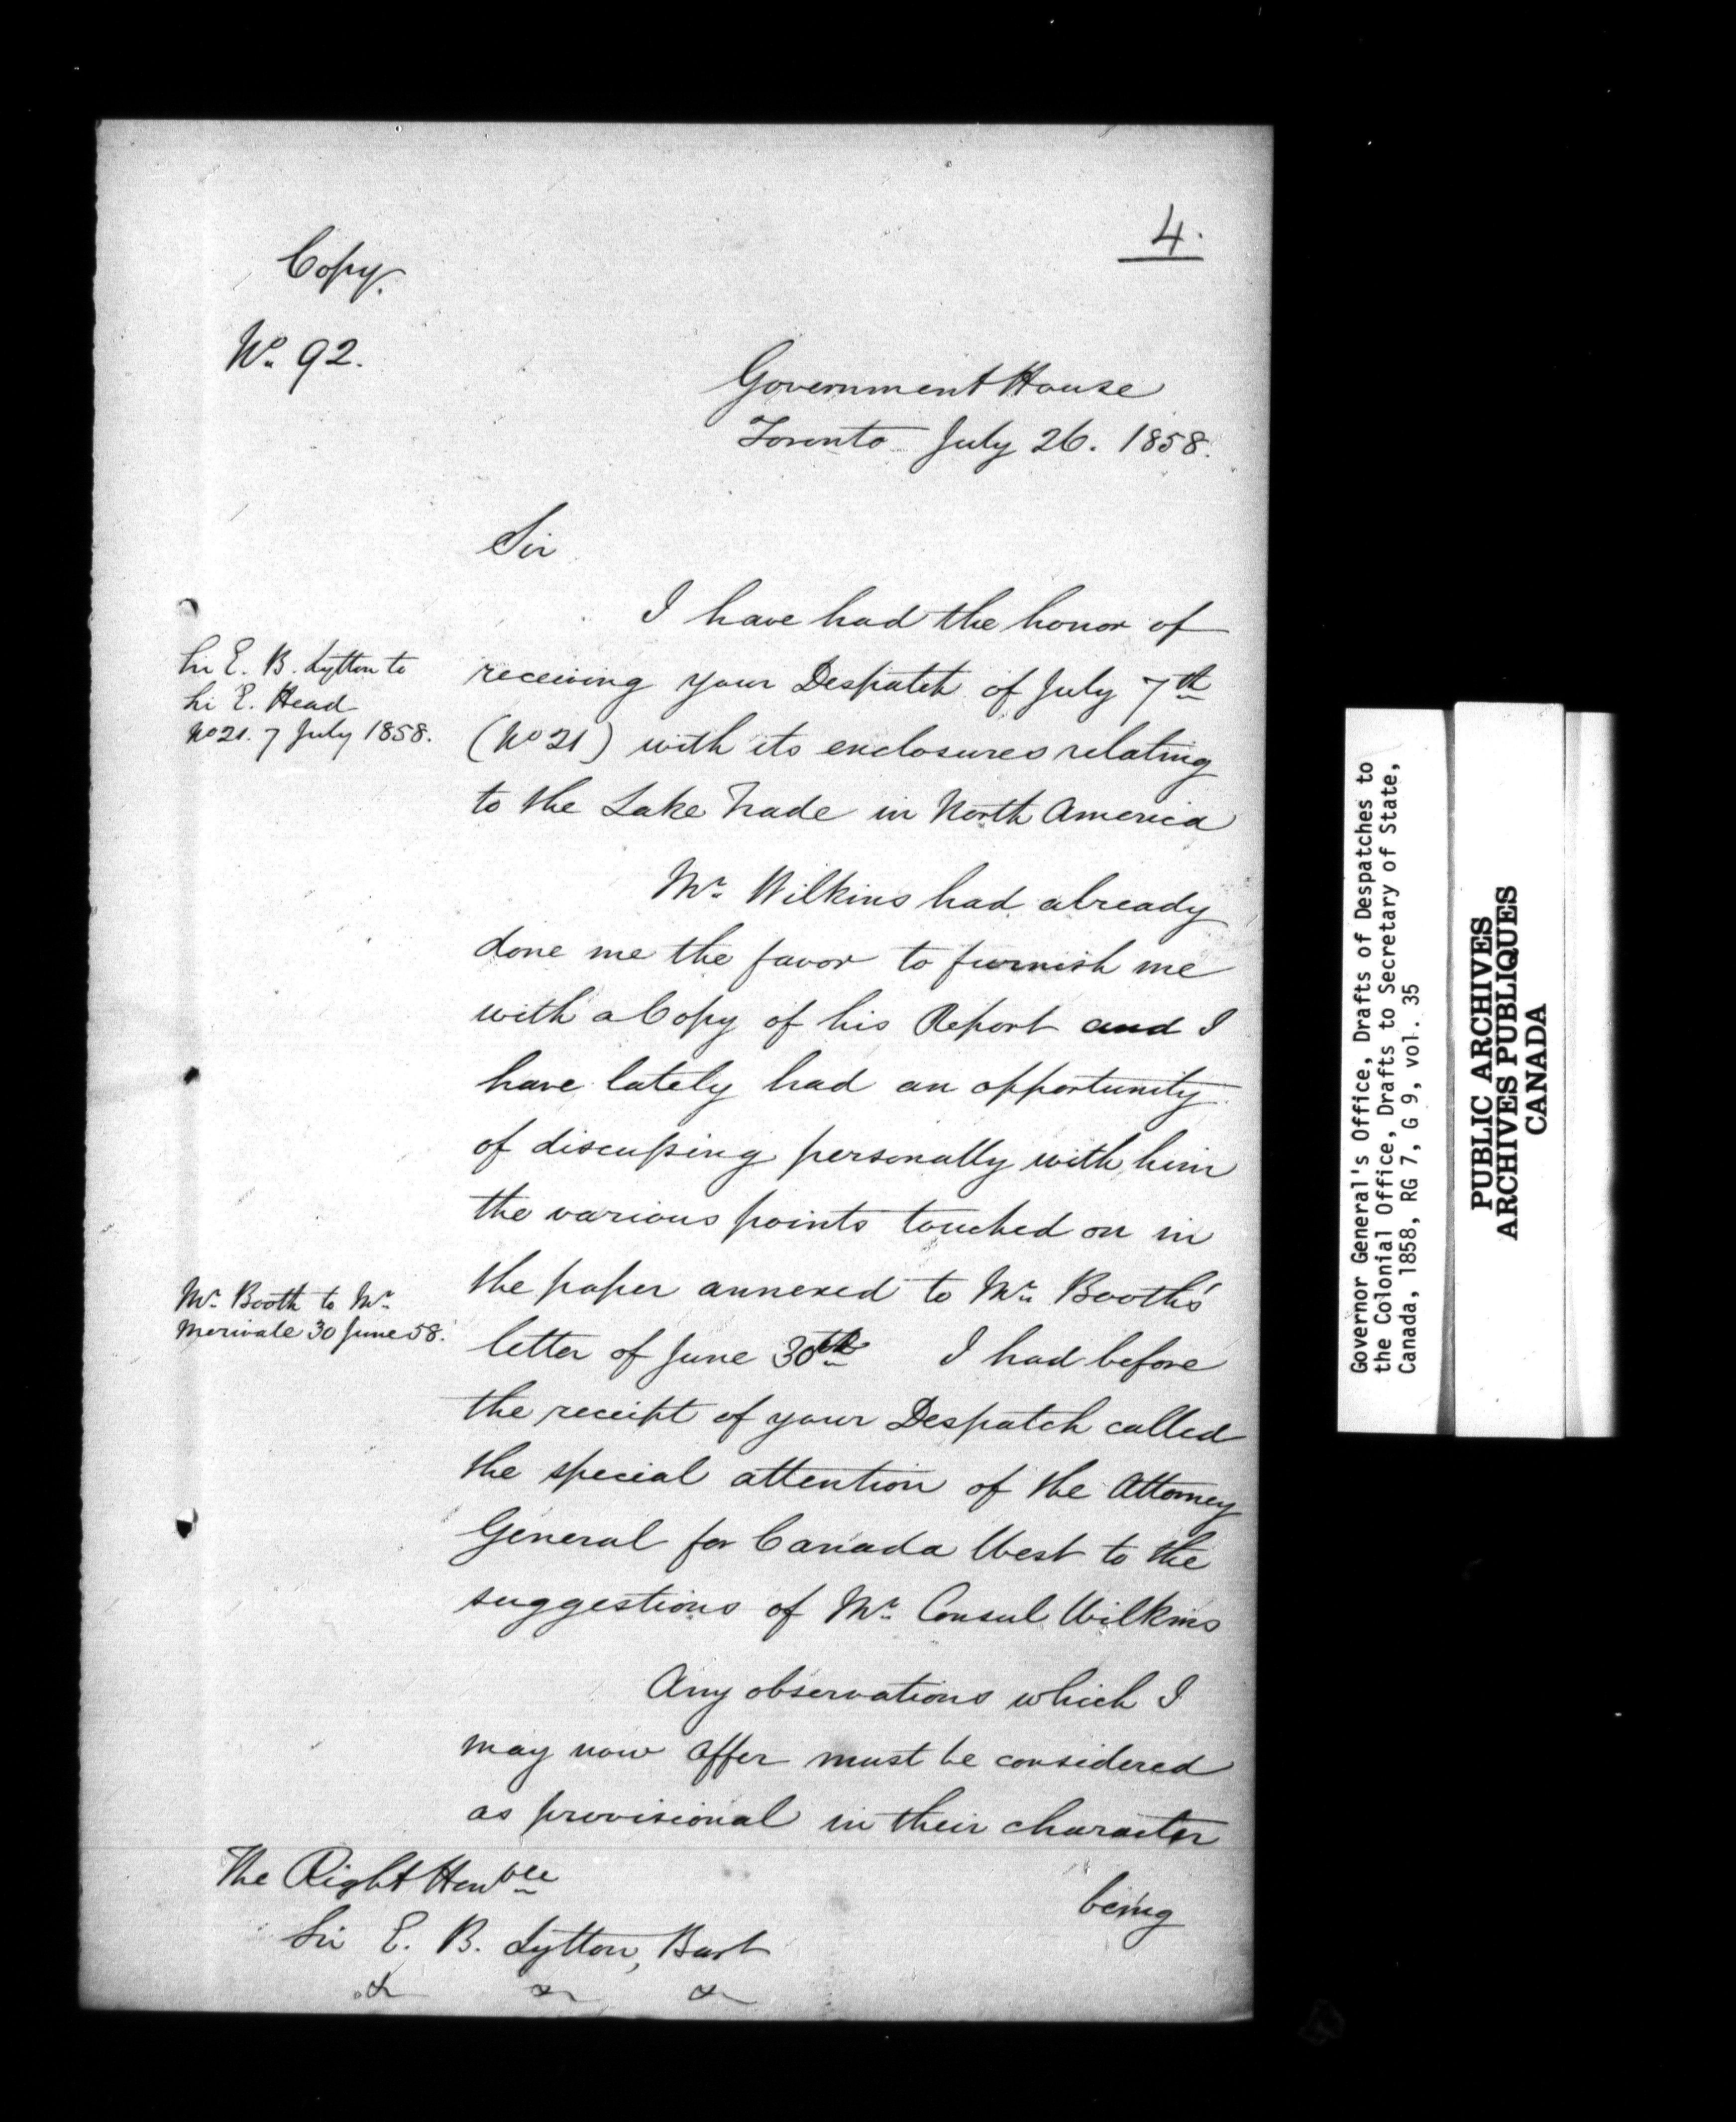 4.
Copy.
No. 92.
Government House
Toronto July 26. 1858.
Sir
I have had the honor of
Sir E. B. Lytton to
Sir E. Head
No 21. 7 July 1858.
receiving your Despatch of July 7th
(No 21) with its enclosures relating
to the Lake Trade in North America
Mr. Wilkins had already
done me the favor to furnish me
with a Copy of his Report and I
have lately had an opportunity
of discussing personally with him
the various points touched on in
Mr. Booth to Mr.
Merivale 30 June 58.
the paper annexed to Mr. Booth's
letter of June 30th I had before
the receipt of your Despatch called
the special attention of the Attorney
General for Canada West to the
suggestions of Mr. Consul Wilkins
Any observations which I
may now offer must be considered
as provisional in their character
being
The Right Honble
Sir E. B. Lytton, Bart
& & &
Governor General's Office, Drafts of Despatches to
the Colonial Office, Drafts to Secretary of State,
Canada, 1858, RG 7, G 9, vol. 35
PUBLIC ARCHIVES
ARCHIVES PUBLIQUES
CANADA